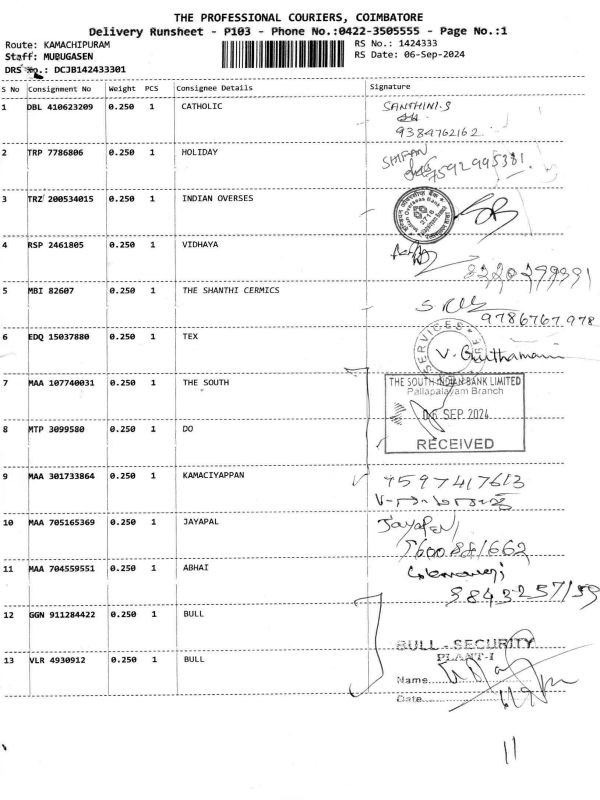 THE PROFESSIONAL COURIERS, COIMBATORE
Delivery Runsheet - P103 - Phone No.:0422-3505555 - Page No.:1
Route: KAMACHIPURAM RS No.: 1424333
Staff: MUBUGASEN RS Date: 06-Sep-2024
DRS No.: DCJB142433301
S No Consignment No Weight PCS Consignee Details Signature
1 DBL 410623209 0.250 1 CATHOLIC SANTHINI.S
9384762162
2 TRP 7786806 0.250 1 HOLIDAY SHIFAN
7592995381
3 TRZ 200534015 0.250 1 INDIAN OVERSES
4 RSP 2461805 0.250 1 VIDHAYA
5 MBI 82607 0.250 1 THE SHANTHI CERMICS
9786767978
SERVICES
6 EDQ 15037880 0.250 1 TEX
7 MAA 107740031 0.250 1 THE SOUTH THE SOUTH INDIAN BANK LIMITED
Pallapalayam Branch
06 SEP 2024
8 MTP 3099580 0.250 1 DO RECEIVED
9 MAA 301733864 0.250 1 KAMACIYAPPAN 9597417613
10 MAA 705165369 0.250 1 JAYAPAL
11 MAA 704559551 0.250 1 ABHAI
12 GGN 911284422 0.250 1 BULL
BULL - SECURITY
PLANT-I
13 VLR 4930912 0.250 1 BULL Name
Date
11